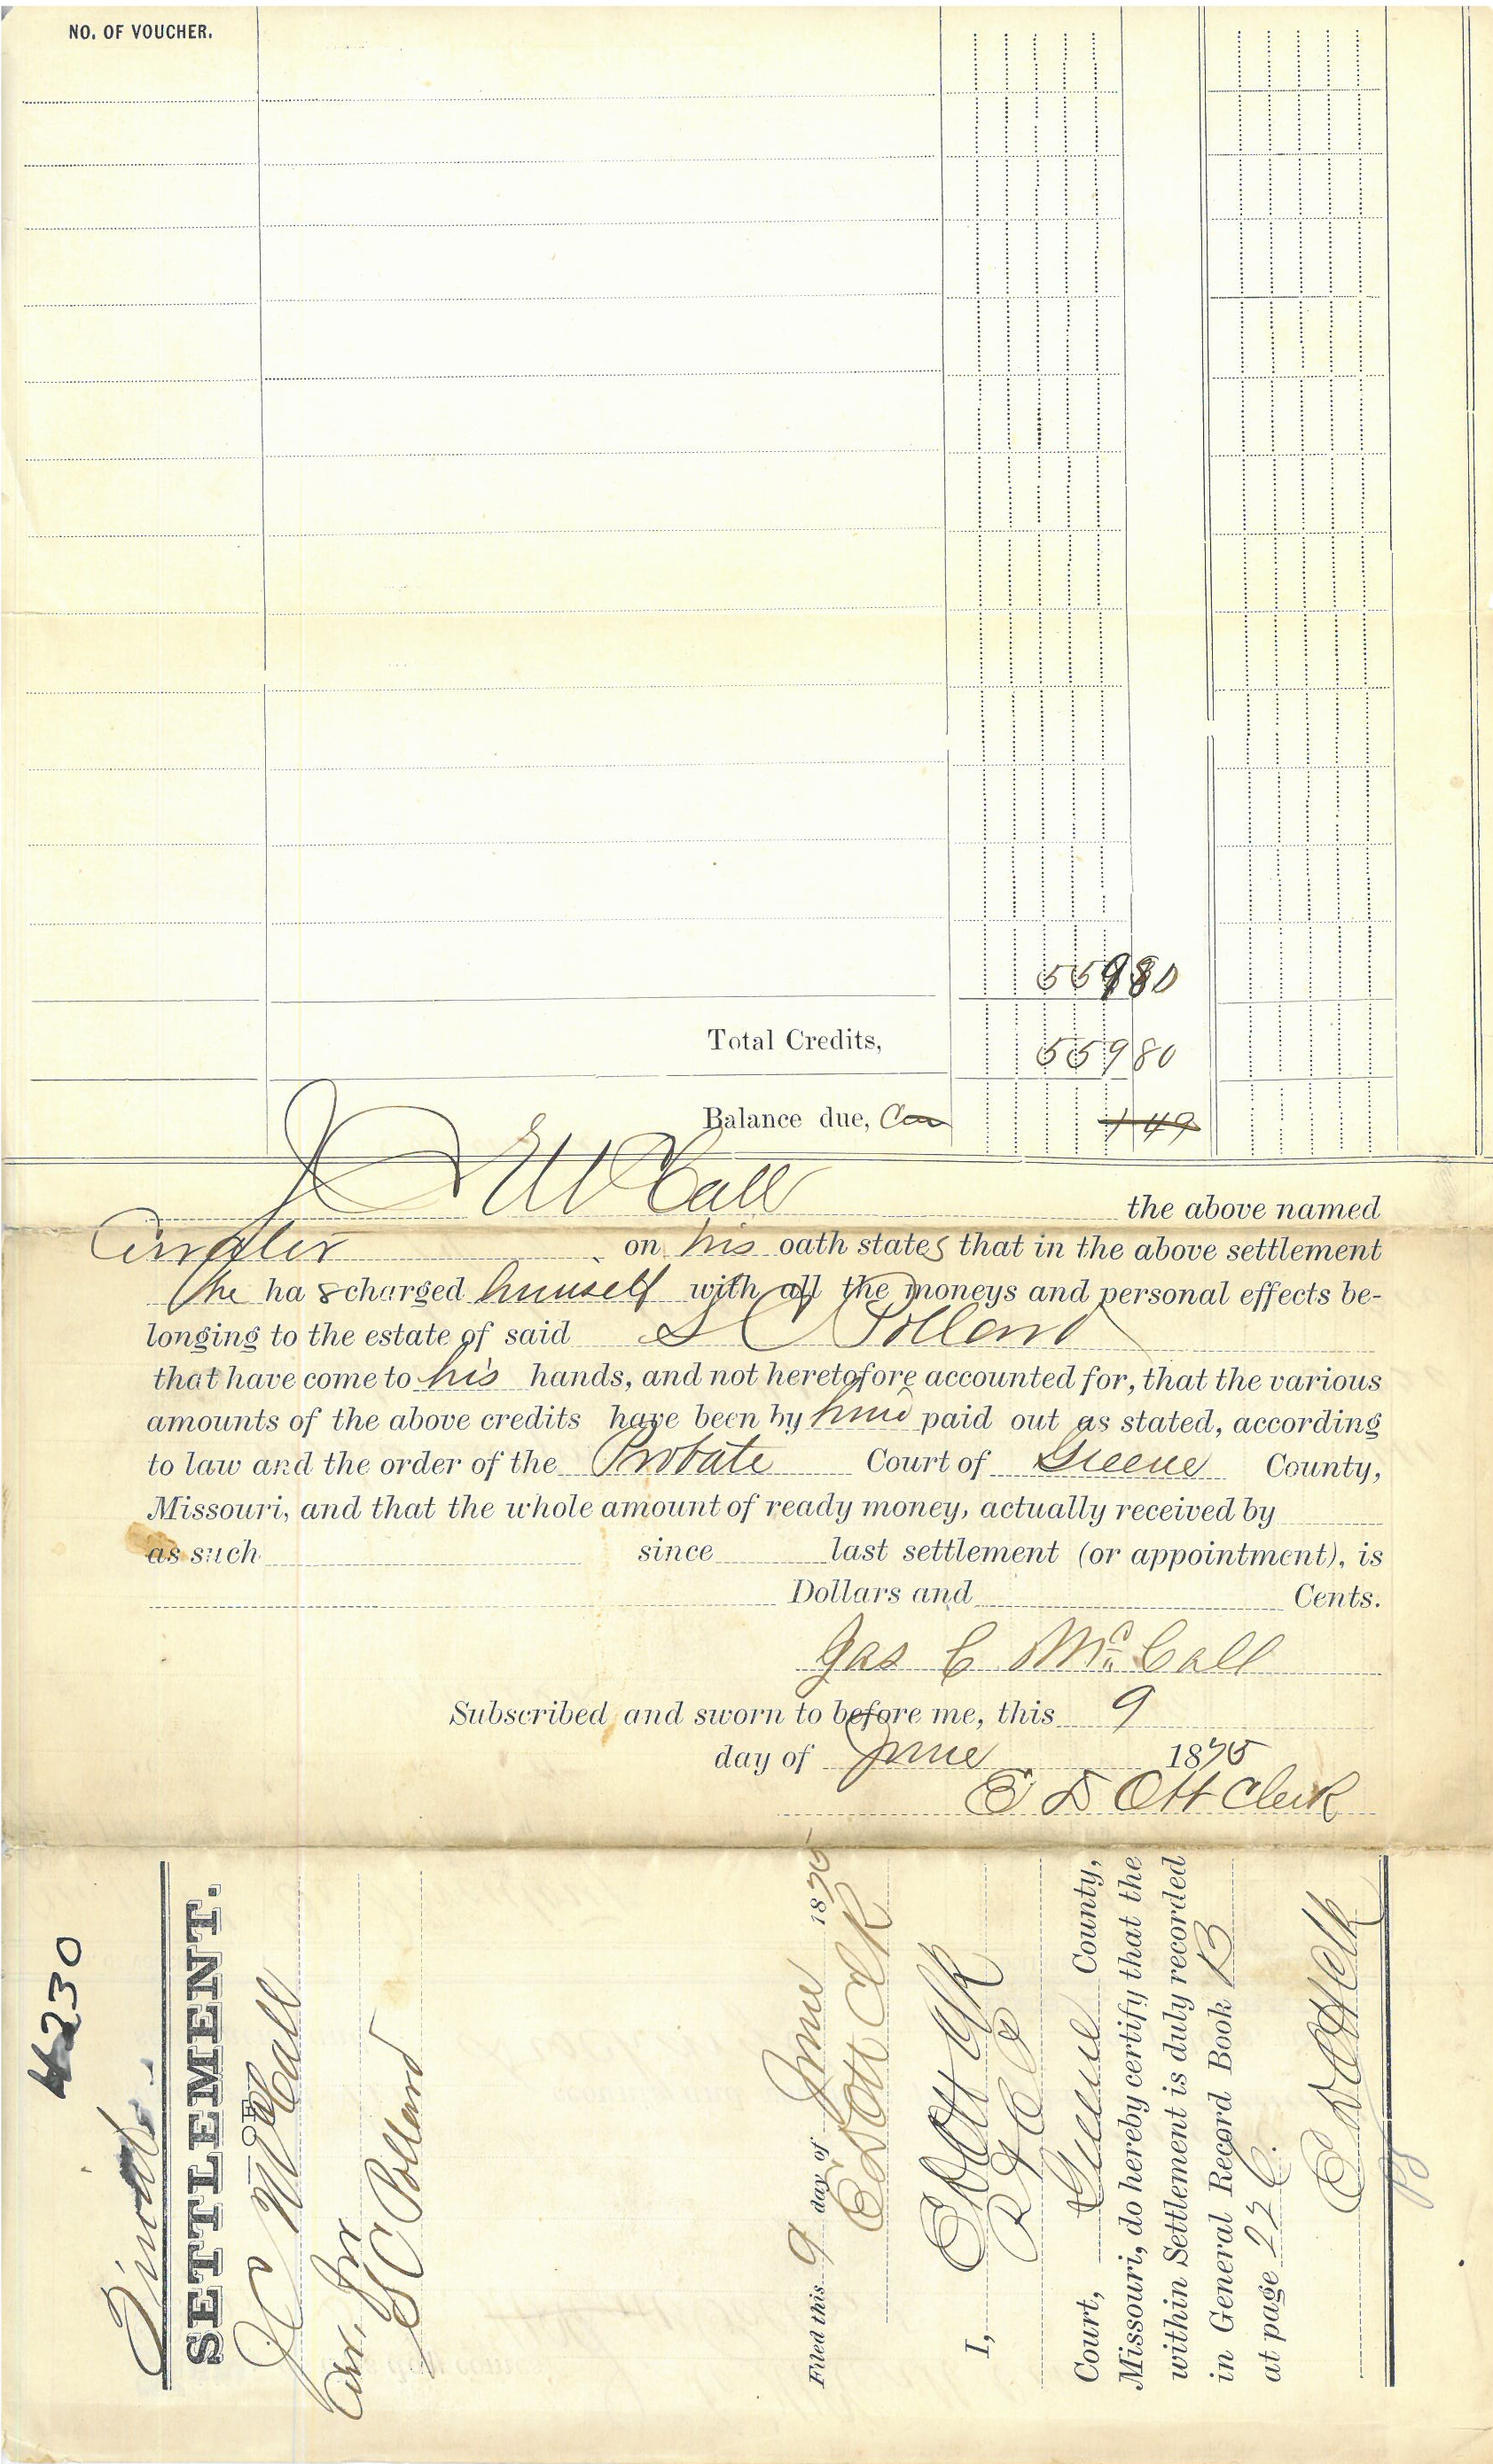 NO. OF VOUCHER.
559 80
Total Credits, 559 80
Balance due, 1 49
J C McCall the above named
on his oath states that in the above settlement
he ha s charged himself with all the moneys and personal effects be-
longing to the estate of said S C Pollard
that have come to his hands, and not heretofore accounted for, that the various
amounts of the above credits have been by him paid out as stated, according
to law and the order of the Probate Court of Greene County,
Missouri, and that the whole amount of ready money, actually received by
as such since last settlement (or appointment), is
Dollars and Cents.
Jas C McCall
Subscribed and sworn to before me, this 9
day of June 1875
E D Ott Clerk
4230
Final
SETTLEMENT.
OF
J C McCall
S C Pollard
Filed this 9 day of June 1875
E D Ott Clk
I, E D Ott Clk
Court, Greene County,
Missouri, do hereby certify that the
within Settlement is duly recorded
in General Record Book B
at page 226.
E D Ott Clk